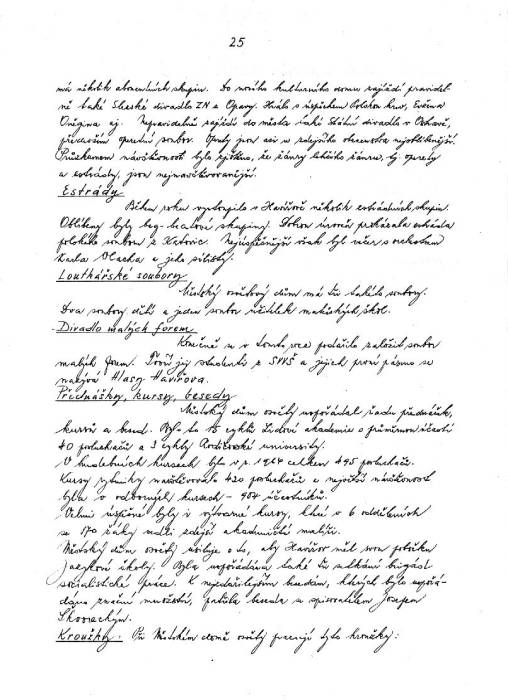 25
má několik abonentních skupin. Do nového kulturního domu zajíždí pravidel-
ně také Slezské divadlo ZN z Opavy. Hrálo s úspěchem Polskou krev, Evžena
Oněgina aj. Nepravidelně zajíždí do města také Státní divadlo v Ostravě,
především operetní soubor. Operety jsou asi u zdejšího obecenstva nejoblíbenější.
Průzkumem návštěvnosti bylo zjištěno, že žánry lehčího žánru, tj. operety
a estrády, jsou nejnavštěvovanější.
Estrády
Během roku vystoupilo v Havířově několik estrádních skupin.
Oblíbeny byly beg-beatové skupiny. Dobrou úroveň prokázala estráda
polského souboru z Katovic. Nejúspěšnější však byl večer s orchestrem
Karla Vlacha a jeho sólisty.
Loutkářské soubory
Městský osvětový dům má tři takové soubory.
Dva soubory dětí a jeden soubor učitelek mateřských škol.
Divadlo malých forem
Konečně se v tomto roce podařilo založit soubor
malých forem. Tvoří jej studenti z SVVŠ a jejich první pásmo se
nazývá Hlasy Havířova.
Přednášky, kursy, besedy
Městský dům osvěty uspořádal řadu přednášek,
kursů a besed. Bylo to 15 cyklů Lidové akademie o průměrné účasti
40 posluchačů a 3 cykly Rodičovské university.
V hudebních kursech bylo v r. 1964 celkem 495 posluchačů.
Kursy rytmiky navštěvovalo 420 posluchačů a největší návštěvnost
byla v odborných kursech - 984 účastníků.
Velmi úspěšné byly i výtvarné kursy, kde v 6 odděleních
se 170 žáky vedli zdejší akademičtí malíři.
Městský dům osvěty usiluje o to, aby Havířov měl svou pobočku
Jazykové školy. Byla uspořádána také tři setkání brigád
socialistické práce. K nejzdařilejším besedám, kterých bylo uspořá-
dáno značné množství, patřila beseda se spisovatelem Josefem
Škvoreckým.
Kroužky. Při Městském domě osvěty pracují tyto kroužky: